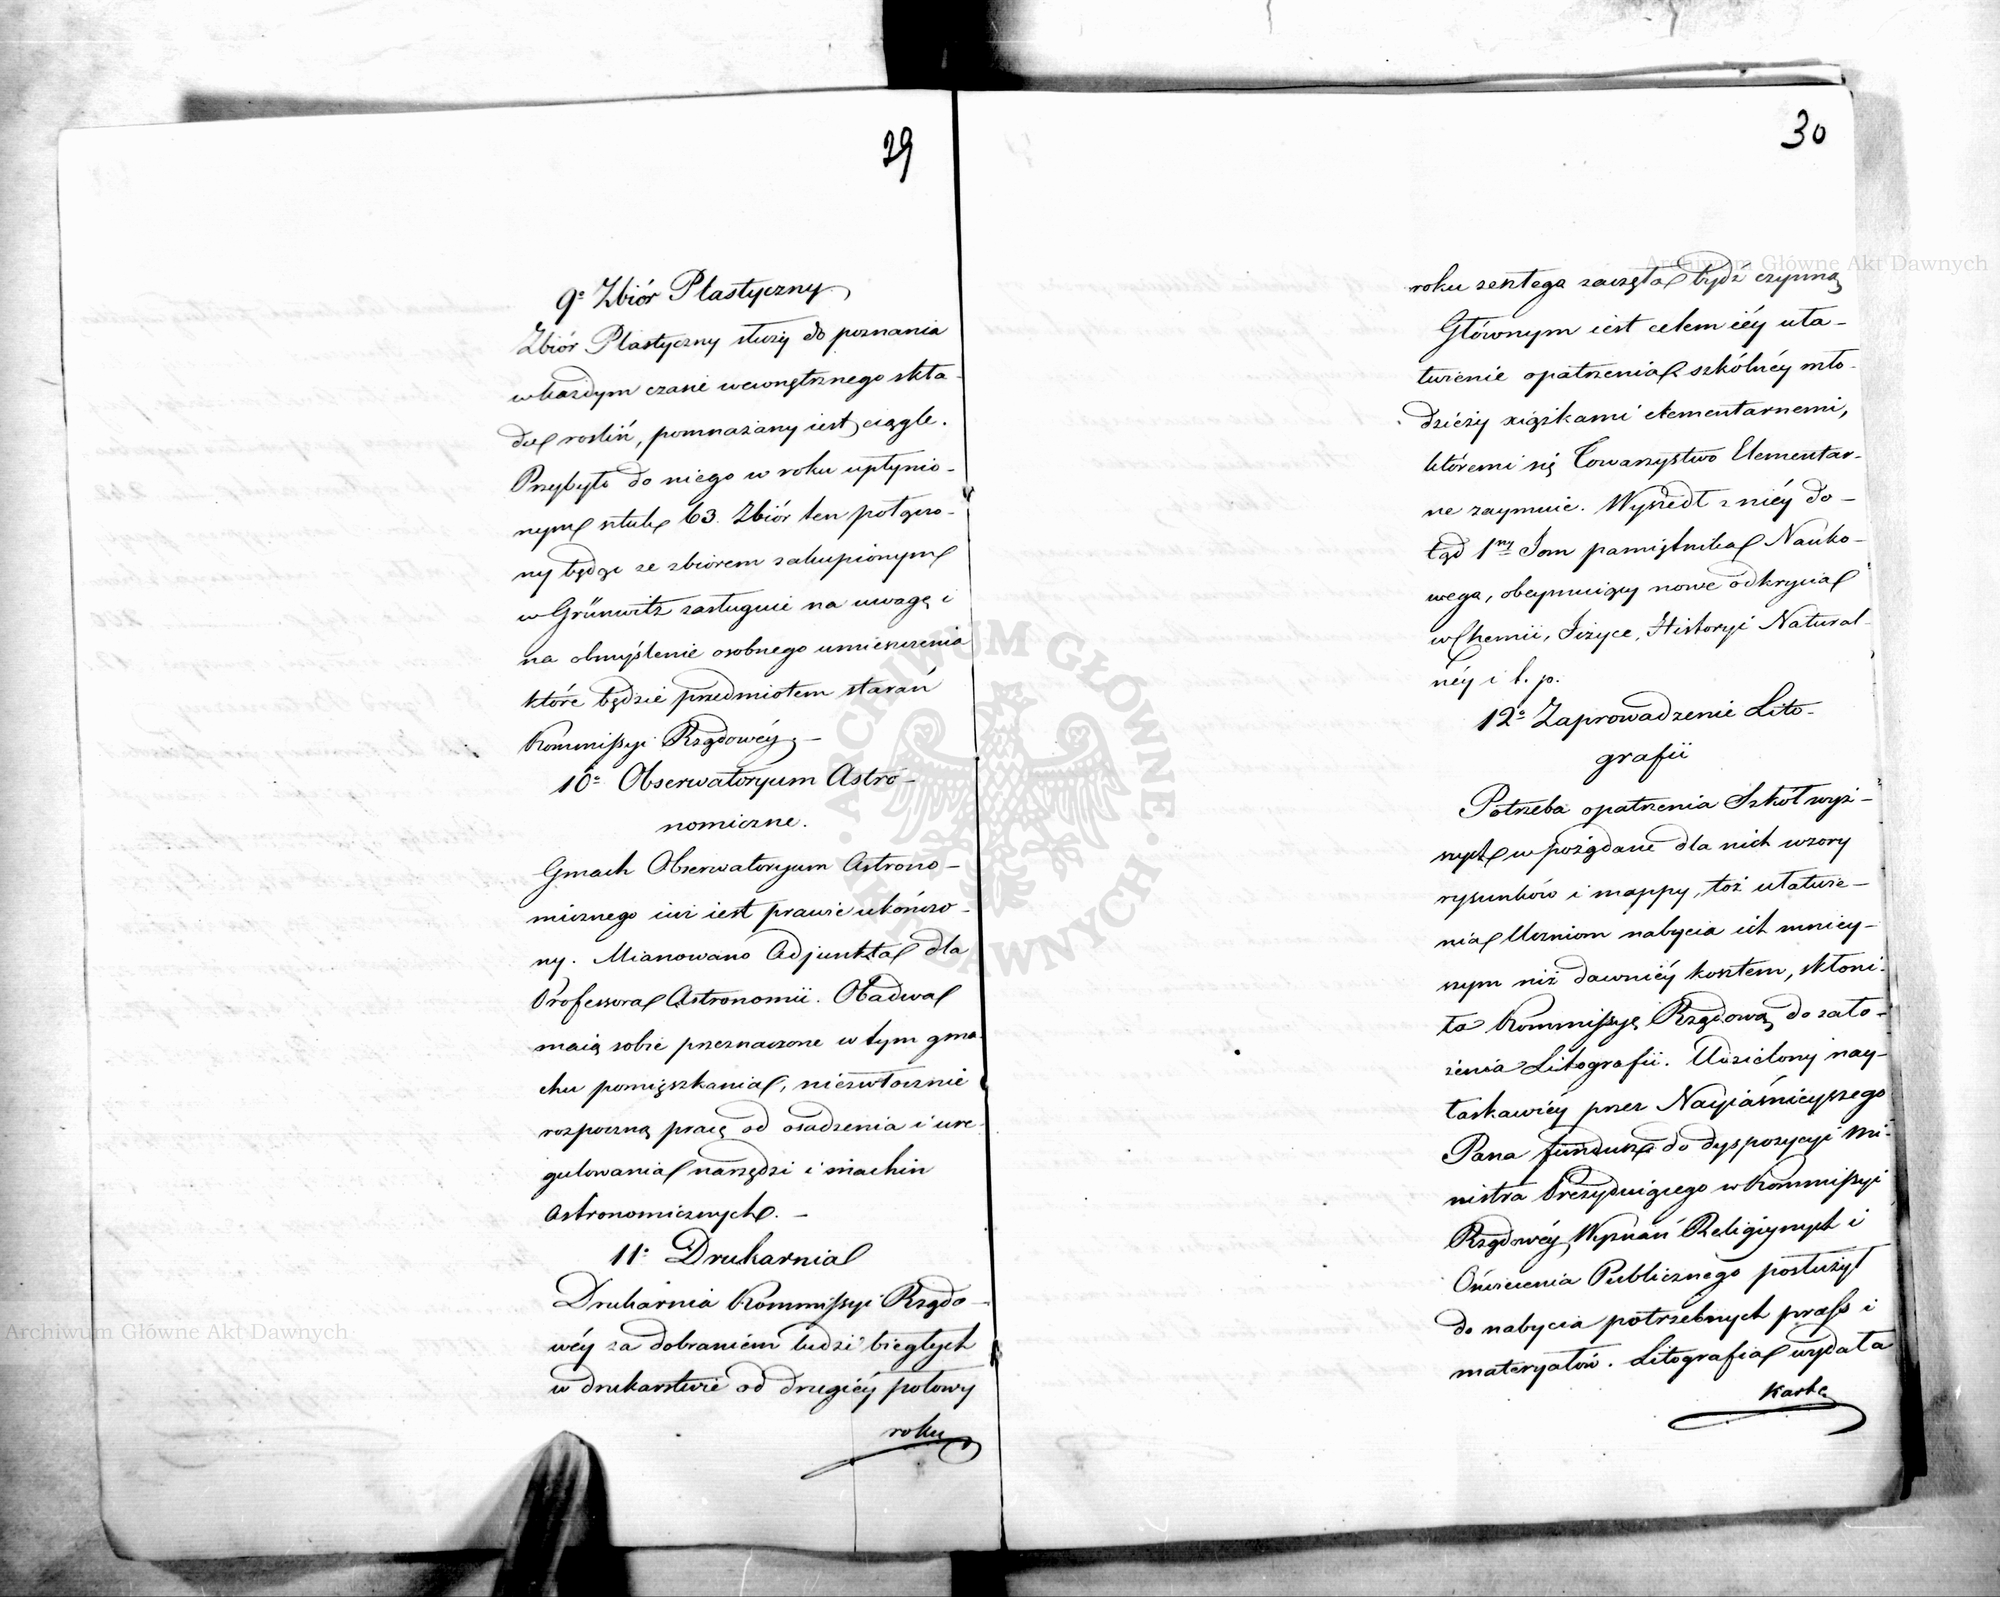 29
9º Zbiór Plastyczny
Zbiór Plastyczny służy do poznania
w każdym czasie wewnętrznego skła-
du roślin, pomnażany iest ciągle.
Przybyło do niego w roku upłynio-
nym sztuk 63. Zbiór ten połączo-
ny będąc ze zbiorem zakupionym
w Grünwitz zasługuie na uwagę i
na obmyślenie osobnego umieszczenia
które będzie przedmiotem starań
Kommissyi Rządowéy. —
10º Obserwatoryum Astro-
nomiczne.
Gmach Obserwatoryum Astrono-
micznego iuż iest prawie ukończo-
ny. Mianowano Adjunkta dla
Professora Astronomii. Obadwa
maią sobie przeznaczone w tym gma-
chu pomięszkania, niezwłocznie
rozpoczną pracę od osadzenia i ure-
gulowania narzędzi i machin
Astronomicznych. —
11º Drukarnia
Drukarnia Kommissyi Rządo-
wéy za dobraniem ludzi biegłych
w drukarstwie od drugiéy połowy
roku
30
roku zeszłego zaczęła bydź czynną
Głównym iest celem iéy uła-
twienie opatrzenia szkólnéy mło-
dzieży xiążkami elementarnemi,
któremi się Towarzystwo Elementar-
ne zaymuie. Wyszedł z niéy do-
tąd 1ny Tom pamiętnika Nauko-
wego, obeymuiący nowe odkrycia
w Chemii, Fizyce, Historyi Natural-
néy i t. p.
12º Zaprowadzenie Lito-
grafii
Potrzeba opatrzenia Szkół wyż-
szych w pożądane dla nich wzory
rysunków i mappy, toż ułatwie-
nia Uczniom nabycia ich mniey-
szym niż dawniéy kosztem, skłoni-
ła Kommissyę Rządową do zało-
żenia Litografii. Udzielony nay-
łaskawiéy przez Nayiaśnieyszego
Pana fundusz do dyspozycyi Mi-
nistra Prezyduiącego w Kommissyi
Rządowéy Wyznań Religiynych i
Oświecenia Publicznego posłużył
do nabycia potrzebnych prass i
materyałów. Litografia wydała
kartę
Archiwum Główne Akt Dawnych
Archiwum Główne Akt Dawnych
ARCHIWUM GŁÓWNE AKT DAWNYCH